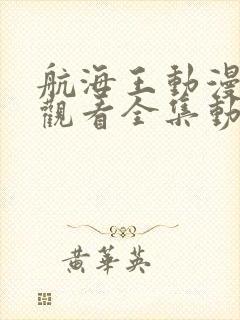 航海王動漫
觀看全集動
黃華英